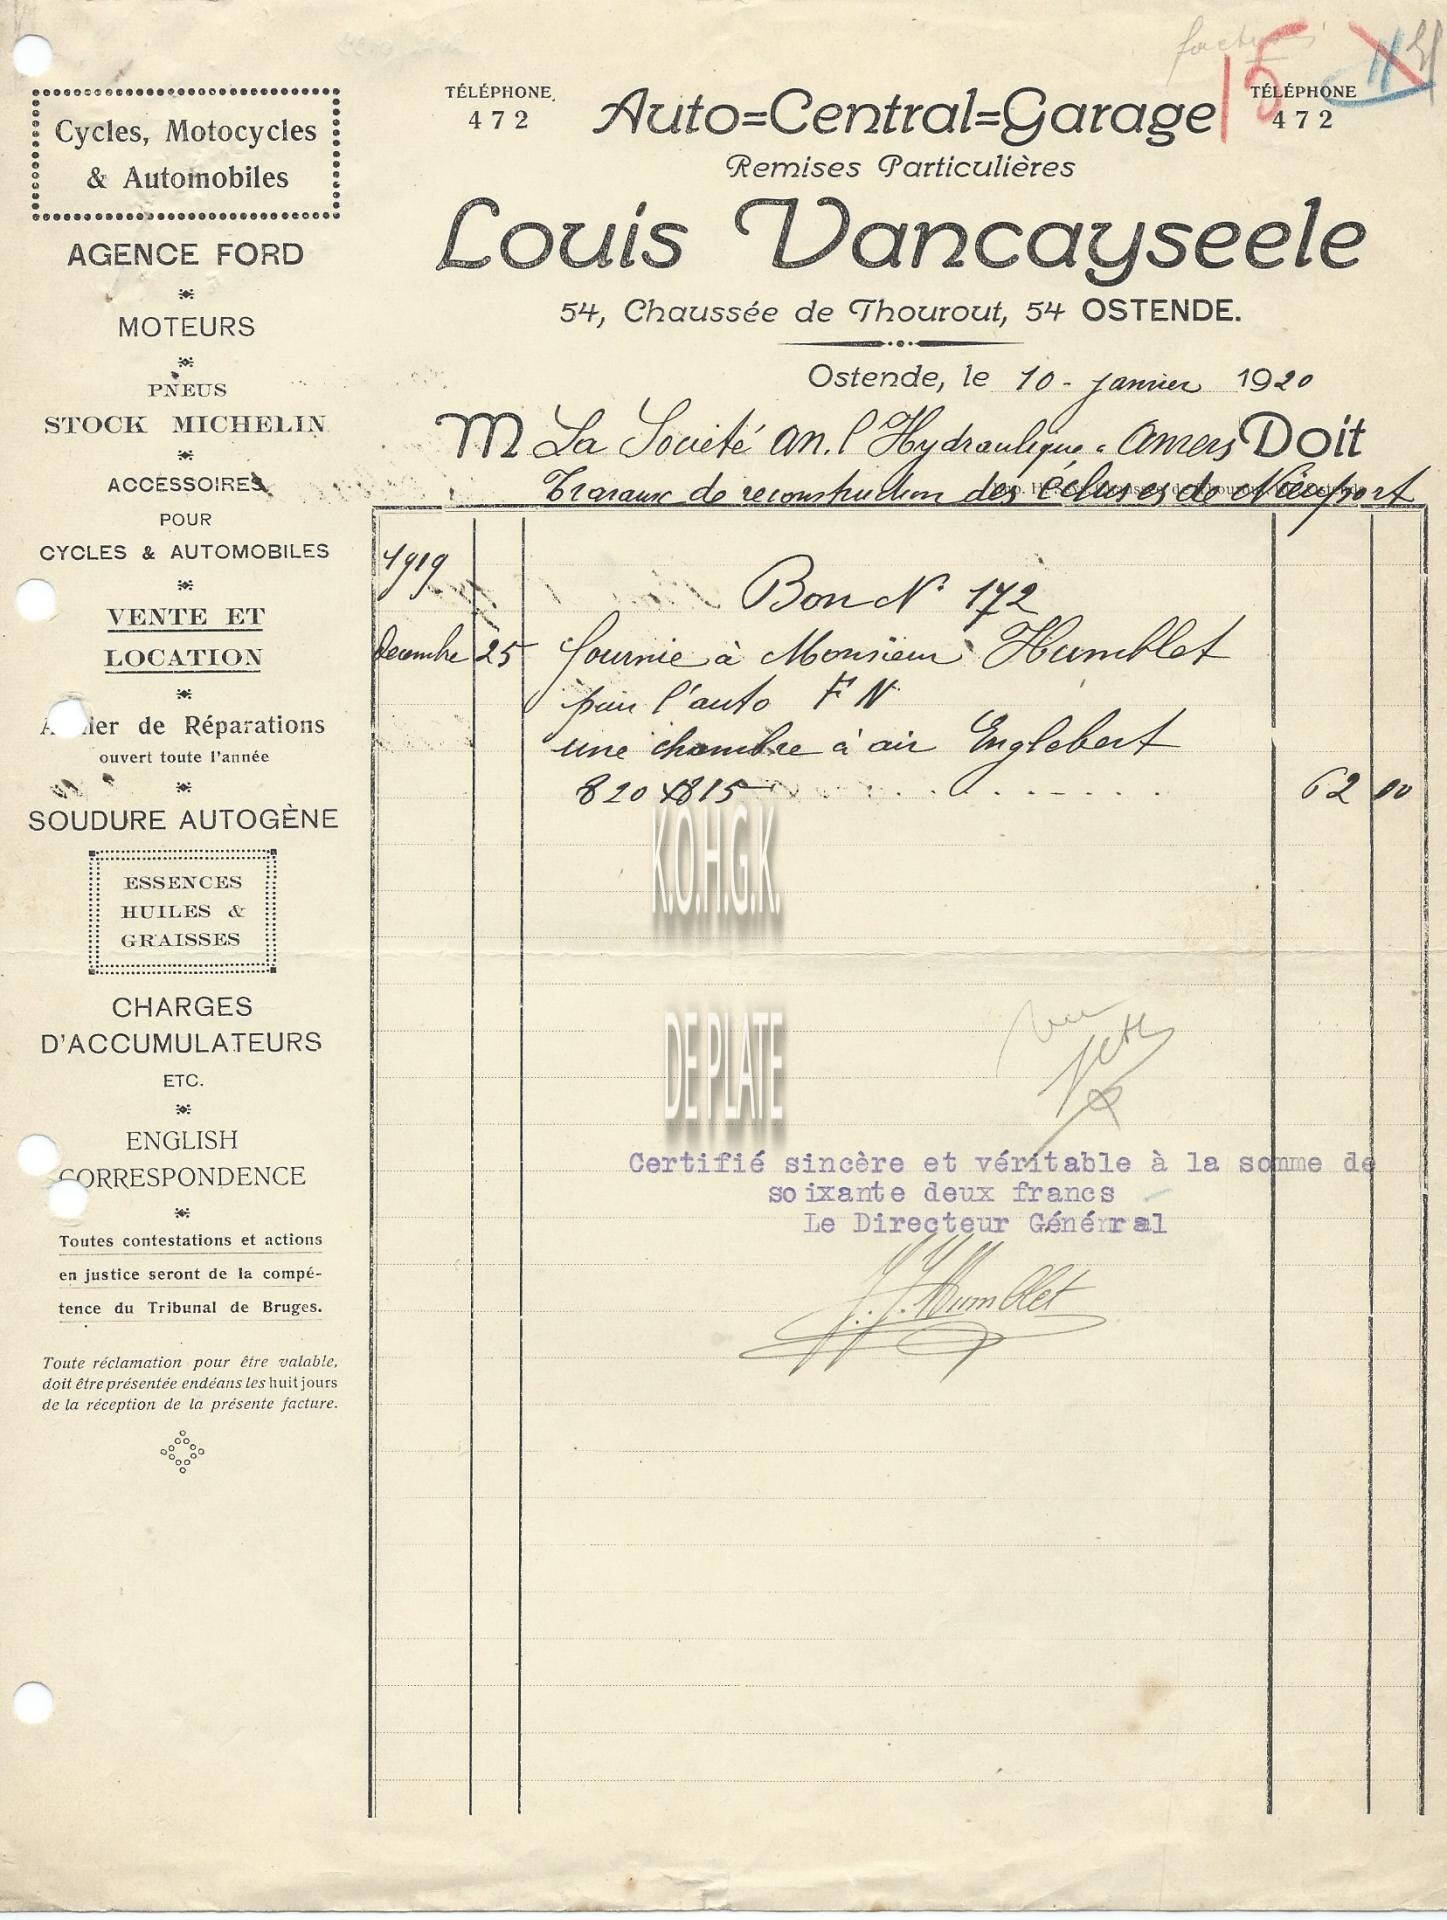 factures
15
TÉLÉPHONE
472
Auto=Central=Garage
TÉLÉPHONE
472
Remises Particulières
Louis Vancayseele
54, Chaussée de Thourout, 54 OSTENDE.
Ostende, le 10 - janvier 1920
M La Société an. l'Hydraulique à Anvers Doit
Travaux de reconstruction des écluses de Nieuport
Cycles, Motocycles
& Automobiles
AGENCE FORD
MOTEURS
PNEUS
STOCK MICHELIN
ACCESSOIRES
POUR
CYCLES & AUTOMOBILES
VENTE ET
LOCATION
de Réparations
ouvert toute l'année
SOUDURE AUTOGÈNE
ESSENCES
HUILES &
GRAISSES
CHARGES
D'ACCUMULATEURS
ETC.
ENGLISH
CORRESPONDENCE
Toutes contestations et actions
en justice seront de la compé-
tence du Tribunal de Bruges.
Toute réclamation pour être valable,
doit être présentée endéans les huit jours
de la réception de la présente facture.
1919
Bon N° 172
decembre 25 fournie à Monsieur Humblet
pour l'auto F N
une chambre à air Englebert
820 x 815 62 00
K.O.H.G.K.
DE PLATE
Vu
Certifié sincère et véritable à la somme de
soixante deux francs
Le Directeur Général
J. J. Humblet